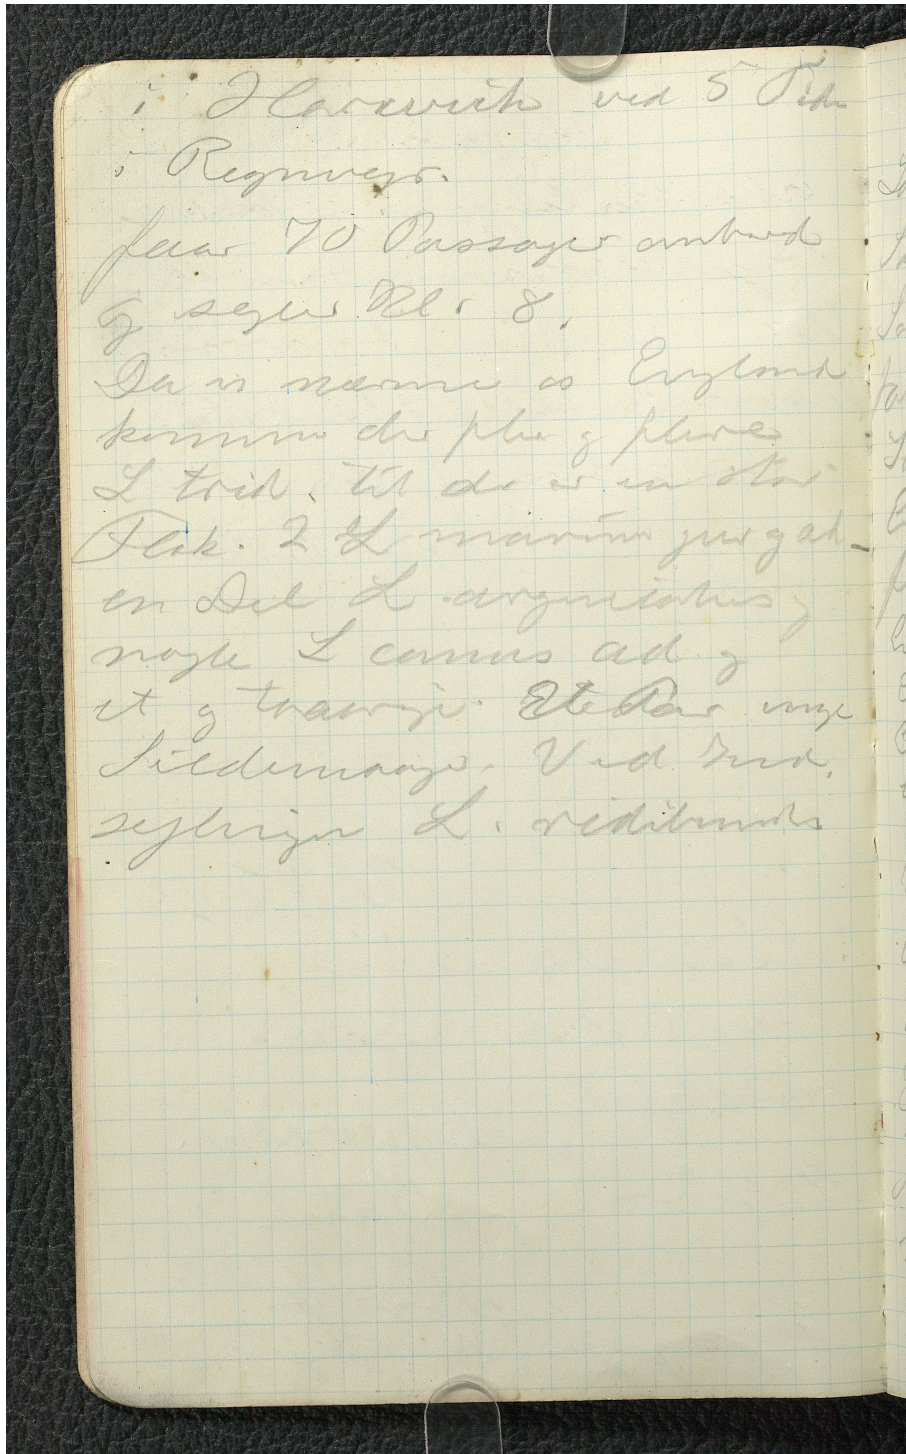 i Harwich ved 5 Tiden
i Regnvejr.
faar 70 Passager ombord
og sejler Kl. 8.
Da vi nærme os England
kommer der flere og flere
L trid. til der er en stor
Flok. 2 L marinus jur og ad_
en Del L argentatus og
nogle L canus ad og
et og toaarige. Et Par unge
Sildemaager. Ved Ind.
sejlingen L. ridibundus